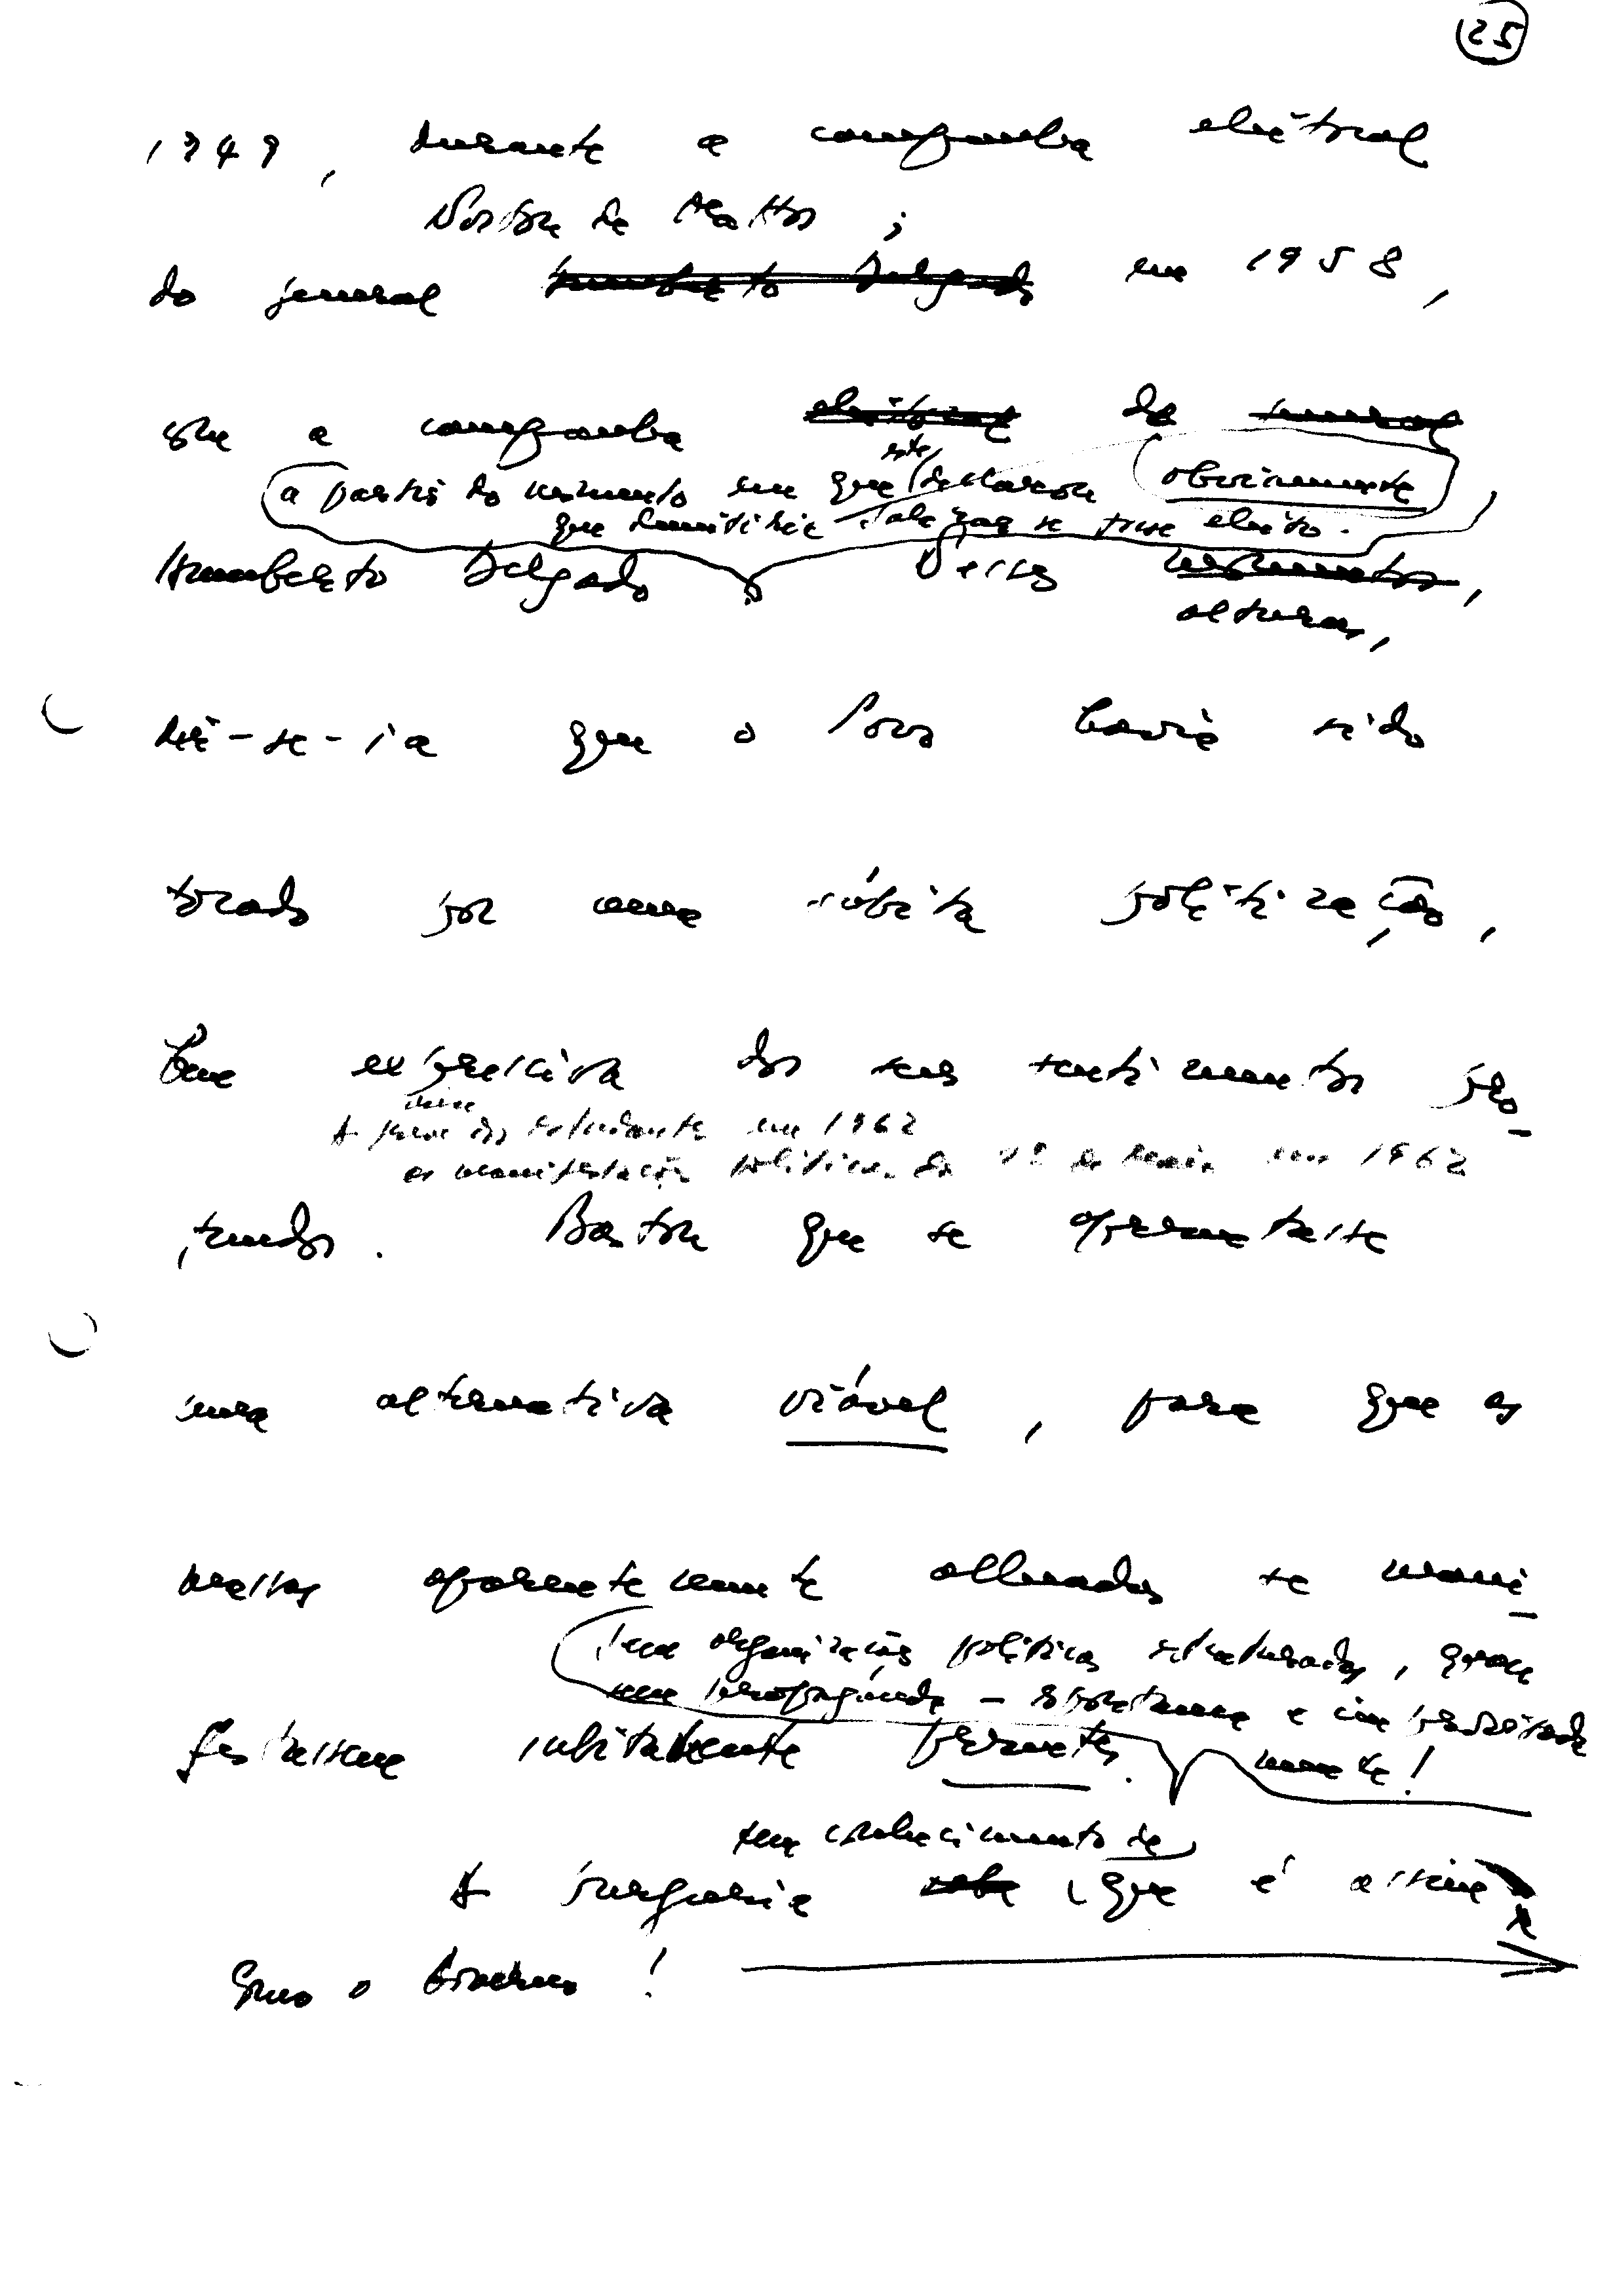 25
1949, durante a campanha eleitoral
Norton de Mattos;
do general Humberto Delgado em 1958,
a campanha eleitoral de general
este
a partir do momento em que declarou obviamente
que demitiria Salazar se fosse eleito.
Humberto Delgado Nessas momentos,
alturas,
dir-se-ia que o Povo havia sido
tocado por uma súbita politização,
bem expressiva dos seus sentimentos pro-
A greve dos estudantes em 1962
as manifestações políticas do de Maio em 1962
fundos. Bastou que se apresentasse
uma alternativa viável, para que as
massas aparentemente alheadas se mani-
sem organização política estruturada, quase
sem propaganda - espontânea e improvisada
festassem subitamente presentes.
mente!
tem conhecimento de
A burguesia sabe que é assim
Como o Governo!